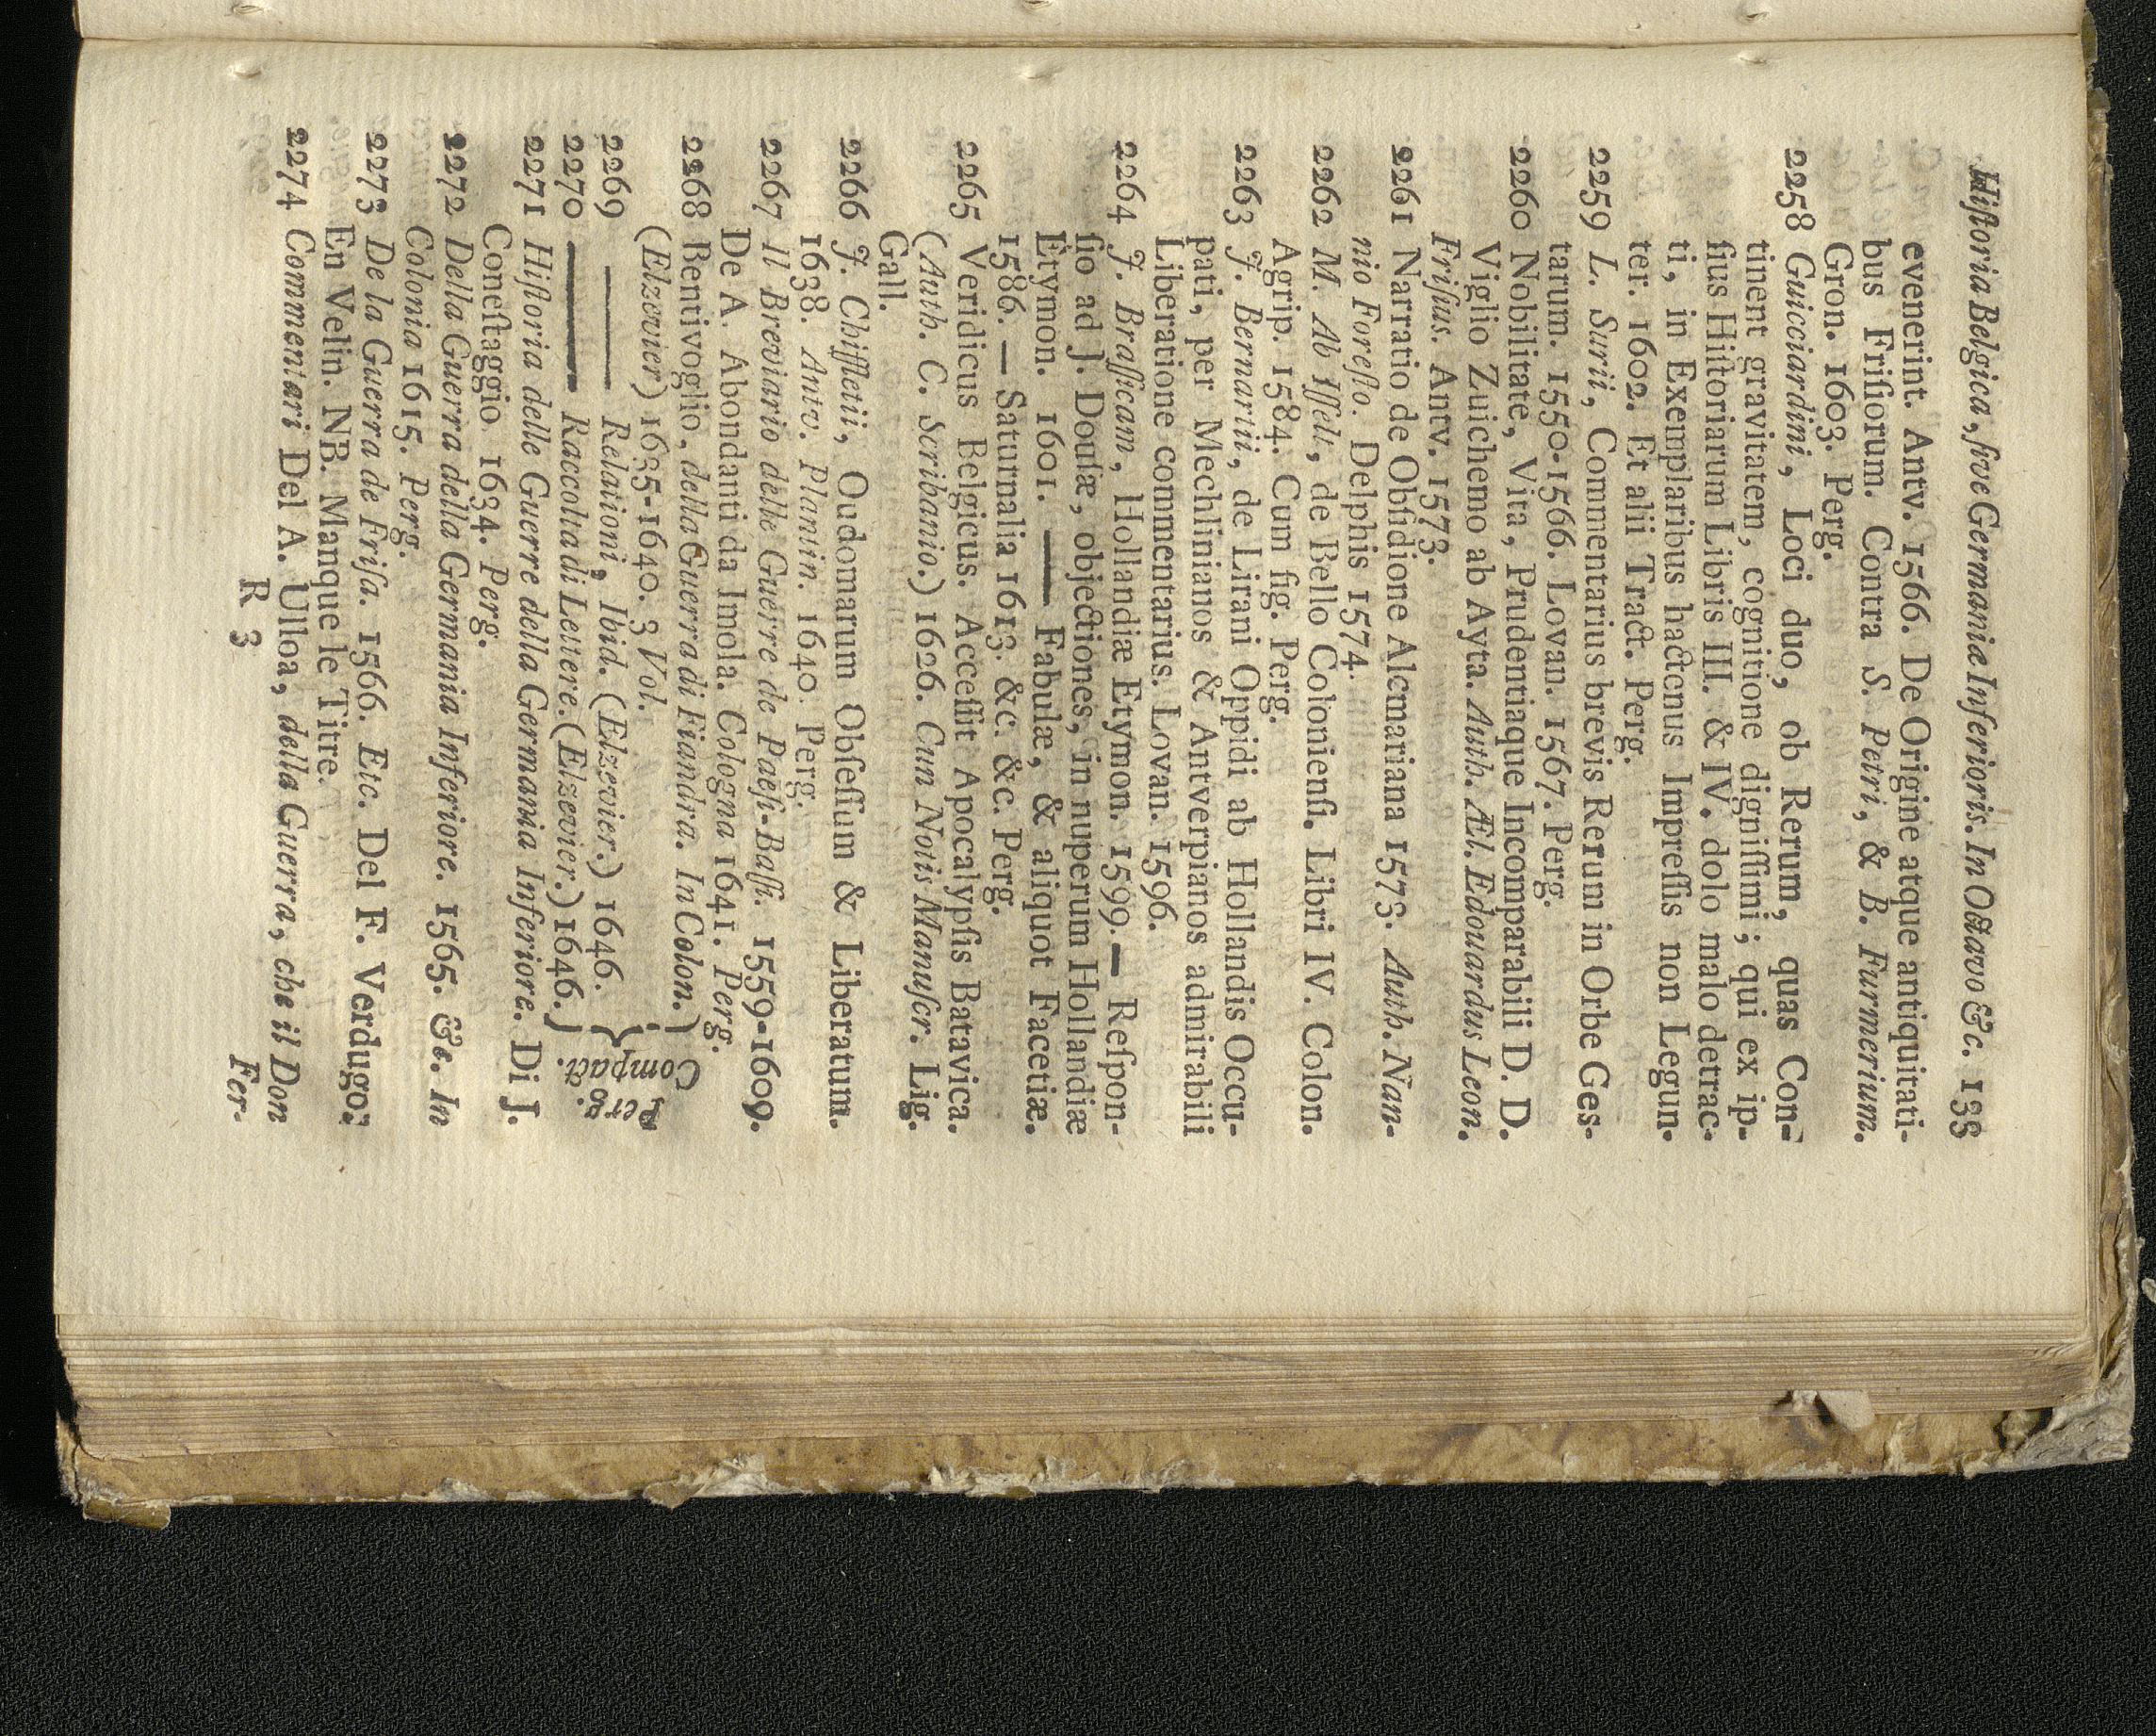 Hiſtoria Belgica, ſive Germaniæ Inferioris. In Octavo &c. 133
evenerint. Antv. 1566. De Origine atque antiquitati-
bus Friſiorum. Contra S. Petri, & B. Furmerium.
Gron. 1603. Perg.
2258 Guicciardini, Loci duo, ob Rerum, quas Con-
tinent gravitatem, cognitione digniſſimi; qui ex ip-
ſius Hiſtoriarum Libris III. & IV. dolo malo detrac-
ti, in Exemplaribus hactenus Impreſſis non Legun-
ter. 1602. Et alii Tract. Perg.
2259 L. Surii, Commentarius brevis Rerum in Orbe Ges-
tarum. 1550-1566. Lovan. 1567. Perg.
2260 Nobilitate, Vita, Prudentiaque Incomparabili D. D.
Viglio Zuichemo ab Ayta. Auth. Æl. Edouardus Leon.
Friſius. Antv. 1573.
2261 Narratio de Obſidione Alcmariana 1573. Auth. Nan-
nio Foreſto. Delphis 1574.
2262 M. Ab Iſſelt, de Bello Colonienſi. Libri IV. Colon.
Agrip. 1584. Cum fig. Perg.
2263 J. Bernartii, de Lirani Oppidi ab Hollandis Occu-
pati, per Mechlinianos & Antverpianos admirabili
Liberatione commentarius. Lovan. 1596.
2264 J. Braſſicam, Hollandiæ Etymon. 1599. — Reſpon-
ſio ad J. Douſæ, objectiones, in nuperum Hollandiæ
Etymon. 1601. —— Fabulæ, & aliquot Facetiæ.
1586. — Saturnalia 1613. &c. &c. Perg.
2265 Veridicus Belgicus. Acceſſit Apocalypſis Batavica.
(Auth. C. Scribanio.) 1626. Cun Notis Manuſcr. Lig.
Gall.
2266 J. Chiffletii, Oudomarum Obſeſſum & Liberatum.
1638. Antv. Plantin. 1640. Perg.
2267 Il Breviario delle Guerre de Paeſi-Baſſi. 1559-1609.
De A. Abondanti da Imola. Cologna 1641. Perg.
2268 Bentivoglio, della Guerra di Fiandra. In Colon.
(Elzevier) 1635-1640. 3 Vol.
2269 —— Relaioni, Ibid. (Elzevier.) 1646.
2270 —— Raccolta di Lettere. (Elzevier.) 1646.
} Compact. Perg.
2271 Hiſtoria delle Guerre della Germania Inferiore. Di J.
Coneſtaggio. 1634. Perg.
2272 Della Guerra della Germania Inferiore. 1565. &c. In
Colonia 1615. Perg.
2273 De la Guerra de Friſa. 1566. Etc. Del F. Verdugo:
En Velin. NB. Manque le Titre.
2274 Commentari Del A. Ulloa, della Guerra, che il Don
R 3
Fer-